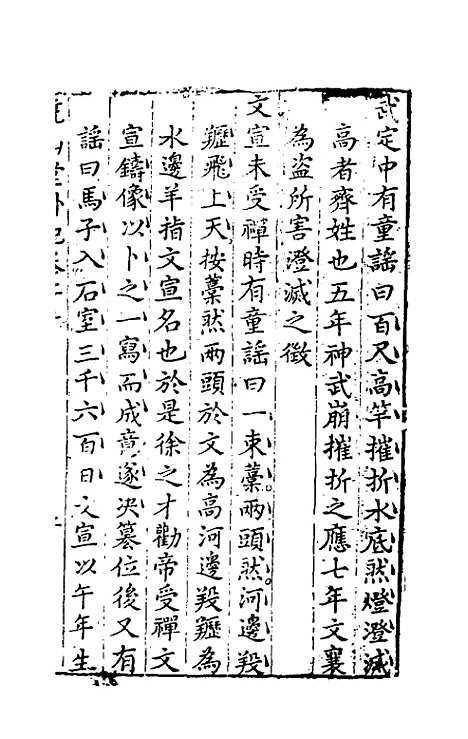 武定中有童謡曰百尺高竿摧折水底燃燈澄滅
高者齊姓也五年神武崩摧折之應七年文襄
為盗所害澄滅之徵
文宣未受禪時有童謡曰一束藁兩頭然河邊羖
䍽飛上天按藁然兩頭於文為高河邊羖䍽為
水邊羊指文宣名也於是徐之才勸帝受禪文
宣鑄像以卜之一寫而成竟遂决篡位後又有
謡曰馬子入石室三千六百日文宣以午年生
堂外紀卷